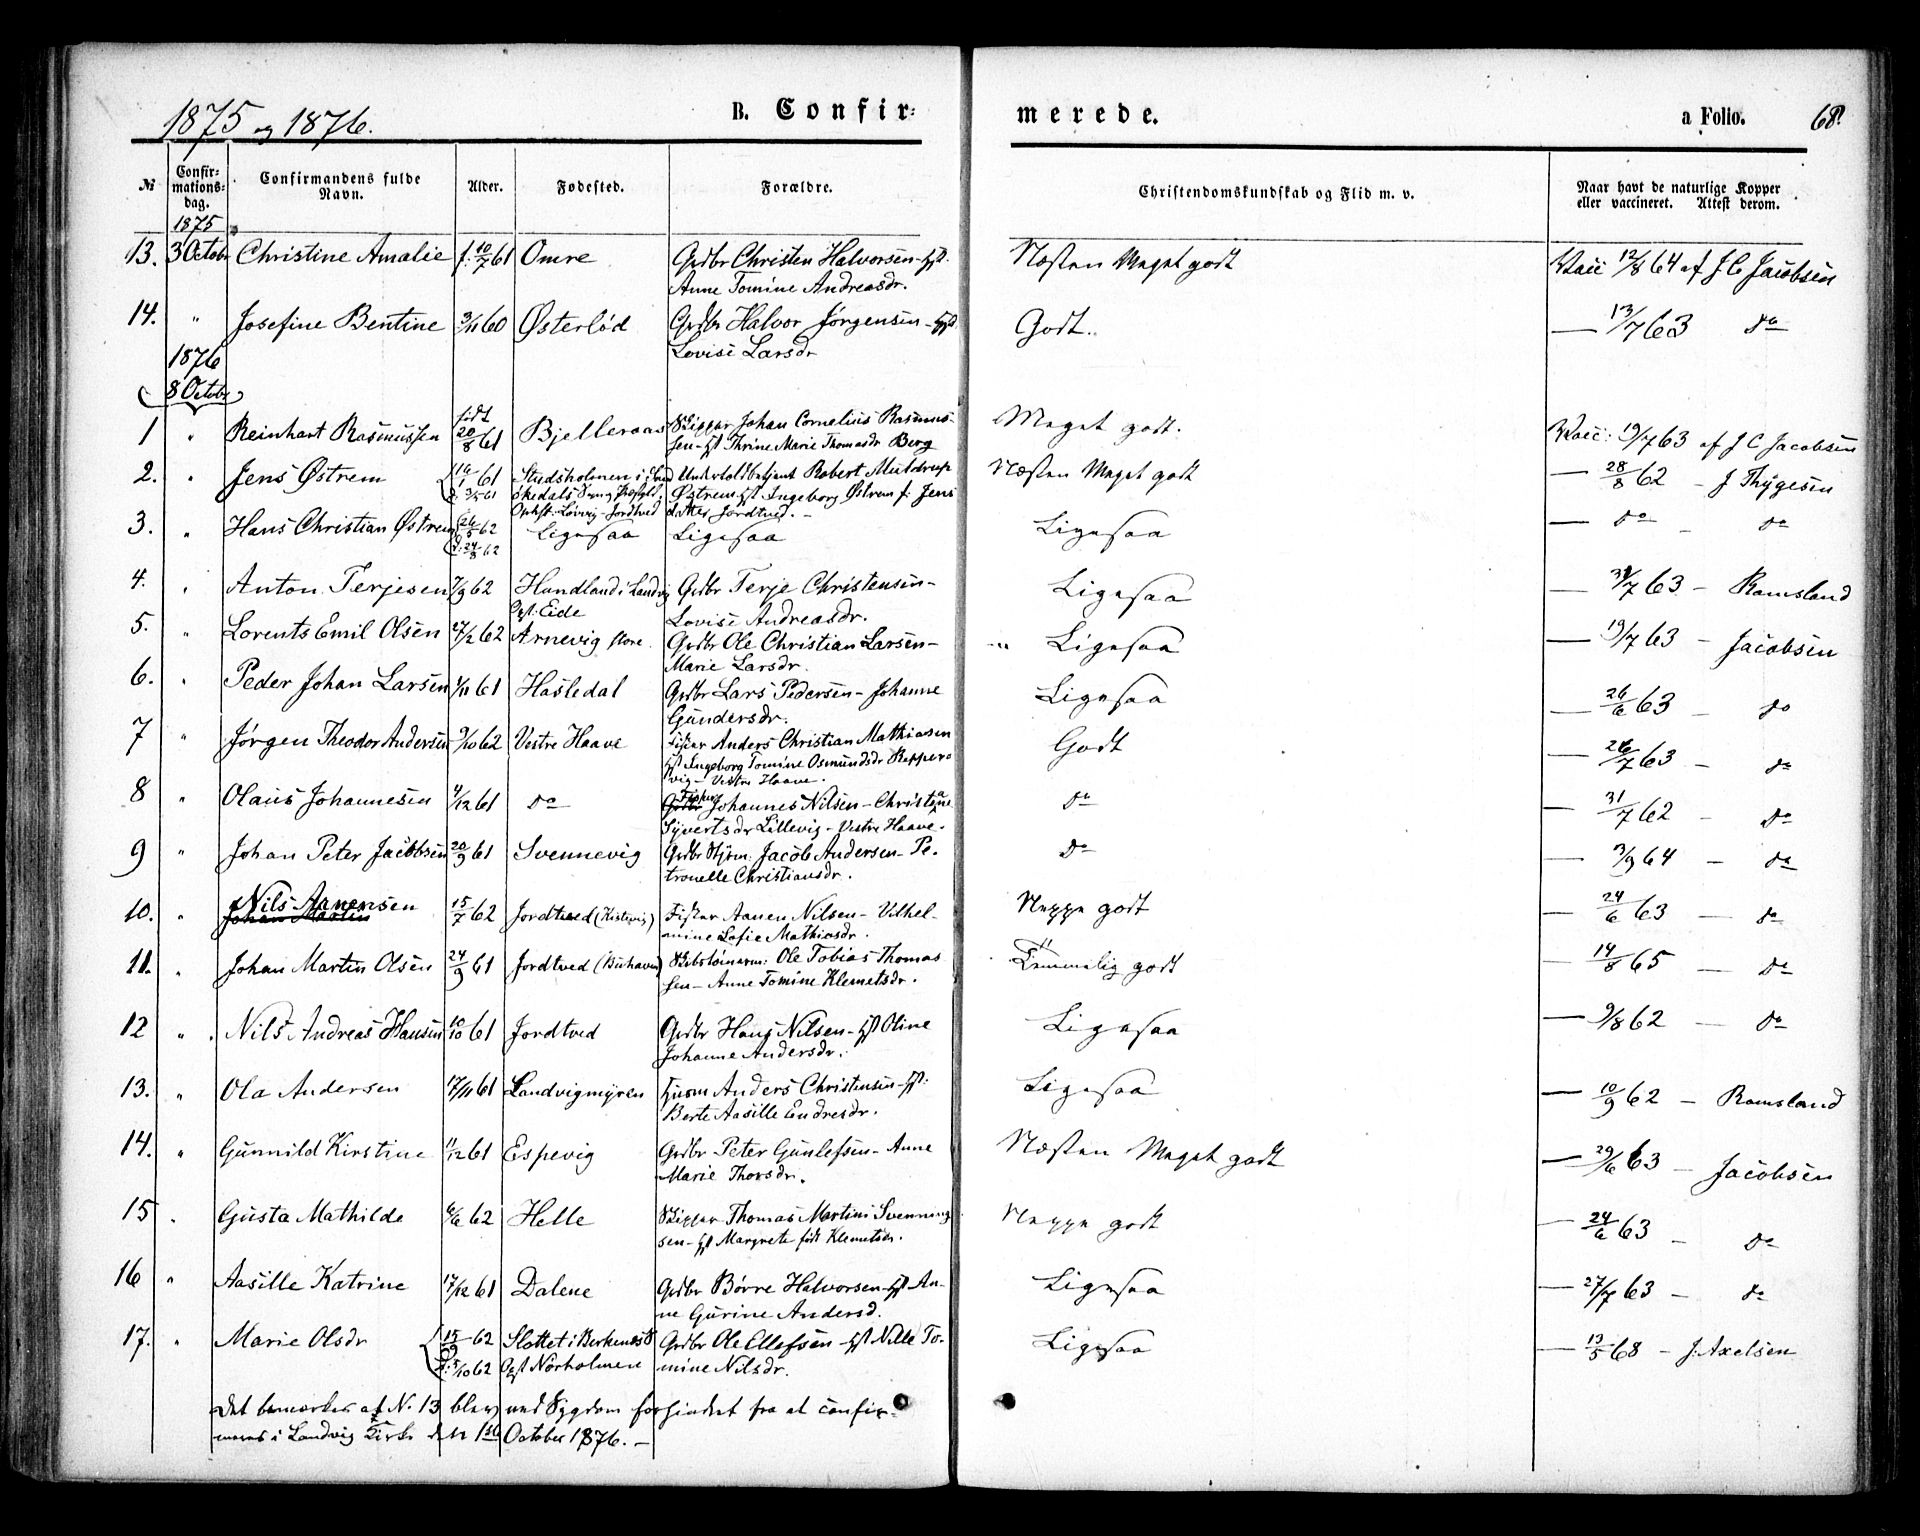 1875 og 1876.
B. Confir-
merede.
a Folio. 68.
№
Confir-
mations-
dag.
Confirmandens fulde
Navn.
Alder.
Fødested.
Forældre.
Christendomskundskab og Flid m. v.
Naar havt de naturlige Kopper
eller vaccineret. Attest derom.
1875
13. 3 Octobr Christine Amalie f. 10/7 61 Omre Grdbr Christen Halvorsen - Hst. Næsten Meget godt Vacc 12/8 64 af J C Jacobsen
Anne Tomine Andreasdr.
14. " Josefine Bentine 3/11 60 Østerlød Grdbr Halvor Jørgensen - Hst Godt. — 13/7 63 do
Lovise Larsdr
1876
8 Octobr
født
1 " Reinhart Rasmussen 20/8 61 Bjelleraas Skipper Johan Cornelius Rasmus- Meget godt. Vacc: 19/7 63 af J C Jacobsen
sen - Hst Thrine Marie Thomasdr Berg
2. " Jens Østrem 1/61 Studsholmen i Undertoldbetjent Robert Næsten Meget godt — 28/8 62 - J Thygesen
Østrem Hst Ingeborg Østrem f. Jens
datter Jordtved. -
3. " Hans Christian Østrem 26/5 62 Ligesaa Ligesaa Ligesaa — do - do
d. 24/8 62
4. " Anton Terjesen 7/9 62 Hundland i Landvig Grdbr Terje Christensen - Ligesaa — 31/7 63 - Ramsland
Opst. Eide Lovise Andreasdr.
5. " Lorents Emil Olsen 27/12 62 Arnevig store. Grdbr Ole Christian Larsen - Ligesaa — 19/7 63 - Jacobsen
Marie Larsdr.
6. " Peder Johan Larsen 1/11 61 Hasledal Grdbr Lars Pedersen - Johanne Ligesaa — 26/6 63 - do
Gundersdr.
7 " Jørgen Theodor Andersen 9/10 62 Vestre Haave Fisker Anders Christian Mathiasen Godt — 26/7 63 - do
Hst Ingeborg Tomine Osmundsdr Reppers
vig - Vestre Haave.
8 " Olaus Johannesen 4/12 61 do Fisker Johannes Nilsen - Christiane do — 31/7 62 - do
Syvertsdr Lillevig - Vestre Haave.
9 " Johan Peter Jacobsen 20/9 61 Svennevig Grdbr Styrm: Jacob Andersen - Pe- do — 3/9 64 - do
tronelle Christiansdr.
10. " Nils Aanensen 15/7 62 Jordtved (Kistevig) Fisker Aanen Nilsen - Vilhel- Neppe godt — 24/6 63 - do
Johan Martin
mine Sofie Mathiasdr.
11. " Johan Martin Olsen 24/9 61 Jordtved (Buhaven) Skibstømrm: Ole Tobias Thomas Temmelig godt — 14/8 65 — do
sen - Anne Tomine Klemetsdr.
12 " Nils Andreas Hansen 10/10 61 Jordtved Grdbr Hans Nilsen - Hst Oline Ligesaa — 9/8 62 — do
Johanne Andersdr.
13. " Ola Andersen 17/11 61 Landvigmyren Husm Anders Christensen - Hst: Ligesaa — 10/9 62 - Ramsland
Berte Aasille Endresdr.
14. " Gunnild Kirstine 11/12 61 Espevig Grdbr Peter Gunlefsen - Anne Næsten Meget godt — 29/6 63 - Jacobsen
Marie Thorsdr.
15 " Gusta Mathilde 6/6 62 Helle Skipper Thomas Martini Svenning Neppe godt — 24/6 63 - do
sen - Hst Margrete født Klemetsen.
16 " Aasille Katrine 17/12 61 Dalene Grdbr Børre Halvorsen - Hst An- Ligesaa — 27/7 63 - do
ne Gurine Andersd.
17. " Marie Olsdr 15/9 62 Slottet i Birkenæs Grdbr Ole Ellefsen - Hst Nille To- Ligesaa — 13/5 68 - J. Axelsen
d. 5/10 62 Opst Nørholmen mine Nilsdr.
Det bemærkes at N. 13 blev ved Sygdom forhindret fra at confir-
meres i Landvig Kirke den 1ste October 1876. -